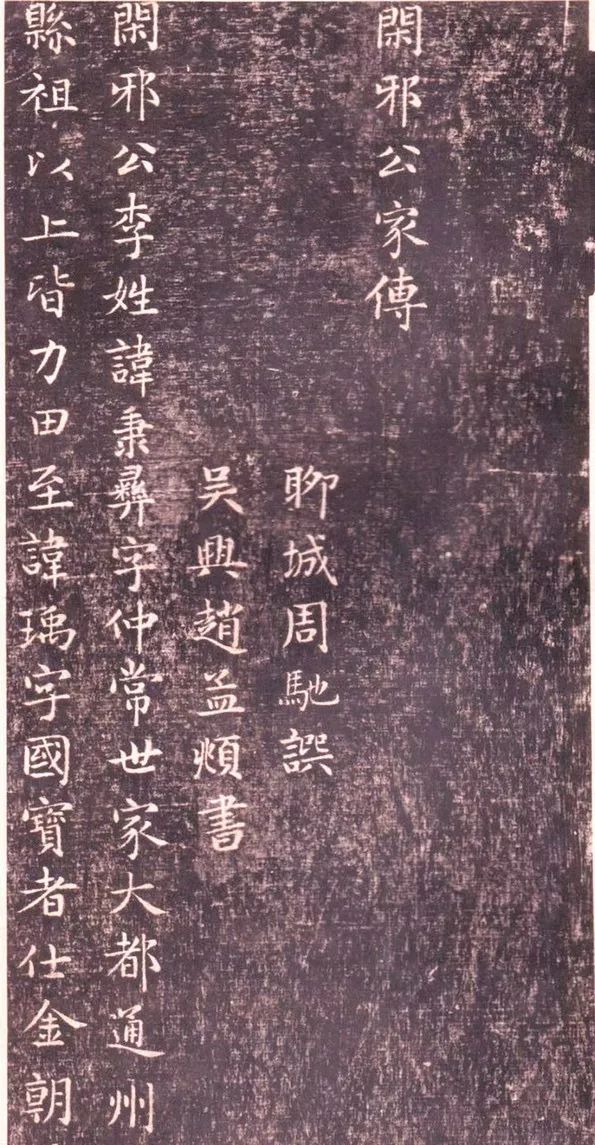 閑邪公家傳
聊城周馳譔
吴興趙孟頫書
閑邪公李姓諱秉彝字仲常世家大都通州
縣祖以上皆力田至諱瑀字國寶者仕金朝